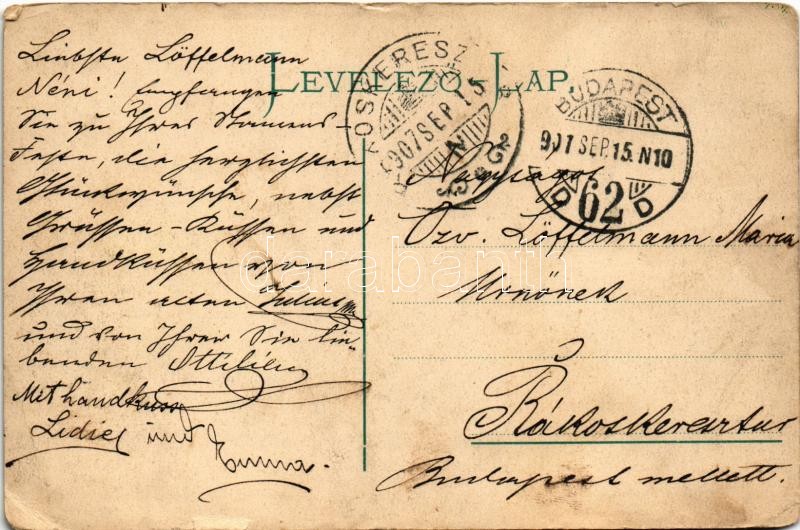 LEVELEZŐ-LAP.
Liebste Löffelmann
Néni! Empfangen
Sie zu Ihres Namens-
Feste, die herzlichsten
Glückwünsche, nebst
Grüssen-Küssen und
Handküssen von
Ihren alten Julius
und von Ihrer Sie lie-
benden Ottilie
Mit handkuss
Lidie und
Emma.
RÁKOSKERESZ
907 SEP 15
BUDAPEST
907 SEP. 15. N10
D 62 D
Nagyságos
Özv. Löffelmann Maria
Urnőnek
Rákoskeresztur
Budapest mellett.
darabanth